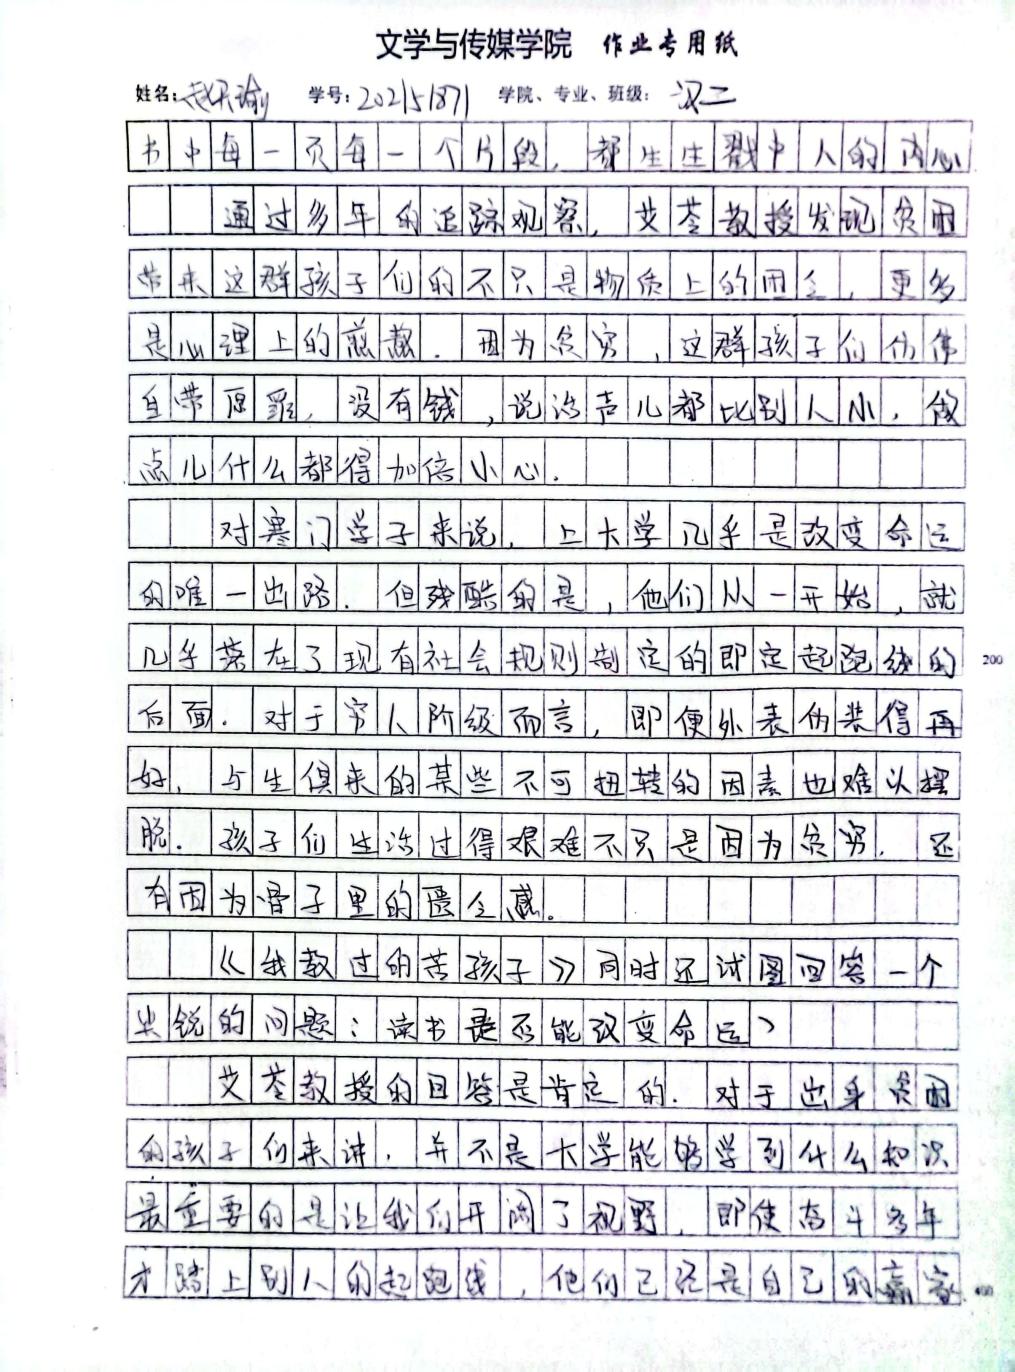 文学与传媒学院 作业专用纸
姓名:赵天瑜 学号:202151871 学院、专业、班级: 汉二
书中每一页每一个片段，都生生戳中人的内心
通过多年的追踪观察，艾苓教授发现贫困
带来这群孩子们的不只是物质上的困乏，更多
是心理上的煎熬．因为贫穷，这群孩子们仿佛
自带原罪，没有钱，说话声儿都比别人小，做
点儿什么都得加倍小心．
对寒门学子来说，上大学几乎是改变命运
的唯一出路．但残酷的是，他们从一开始，就
几乎落在了现有社会规则制定的即定起跑线的
200
后面．对于穷人阶级而言，即便外表伪装得再
好，与生俱来的某些不可扭转的因素也难以摆
脱．孩子们生活过得艰难不只是因为贫穷．还
有因为骨子里的匮乏感。
《我教过的苦孩子》同时还试图回答一个
尖锐的问题：读书是否能改变命运？
艾苓教授的回答是肯定的．对于出身贫困
的孩子们来讲，并不是大学能够学到什么知识
最重要的是让我们开阔了视野，即使奋斗多年
才踏上别人的起跑线，他们已经是自己的赢家．
400